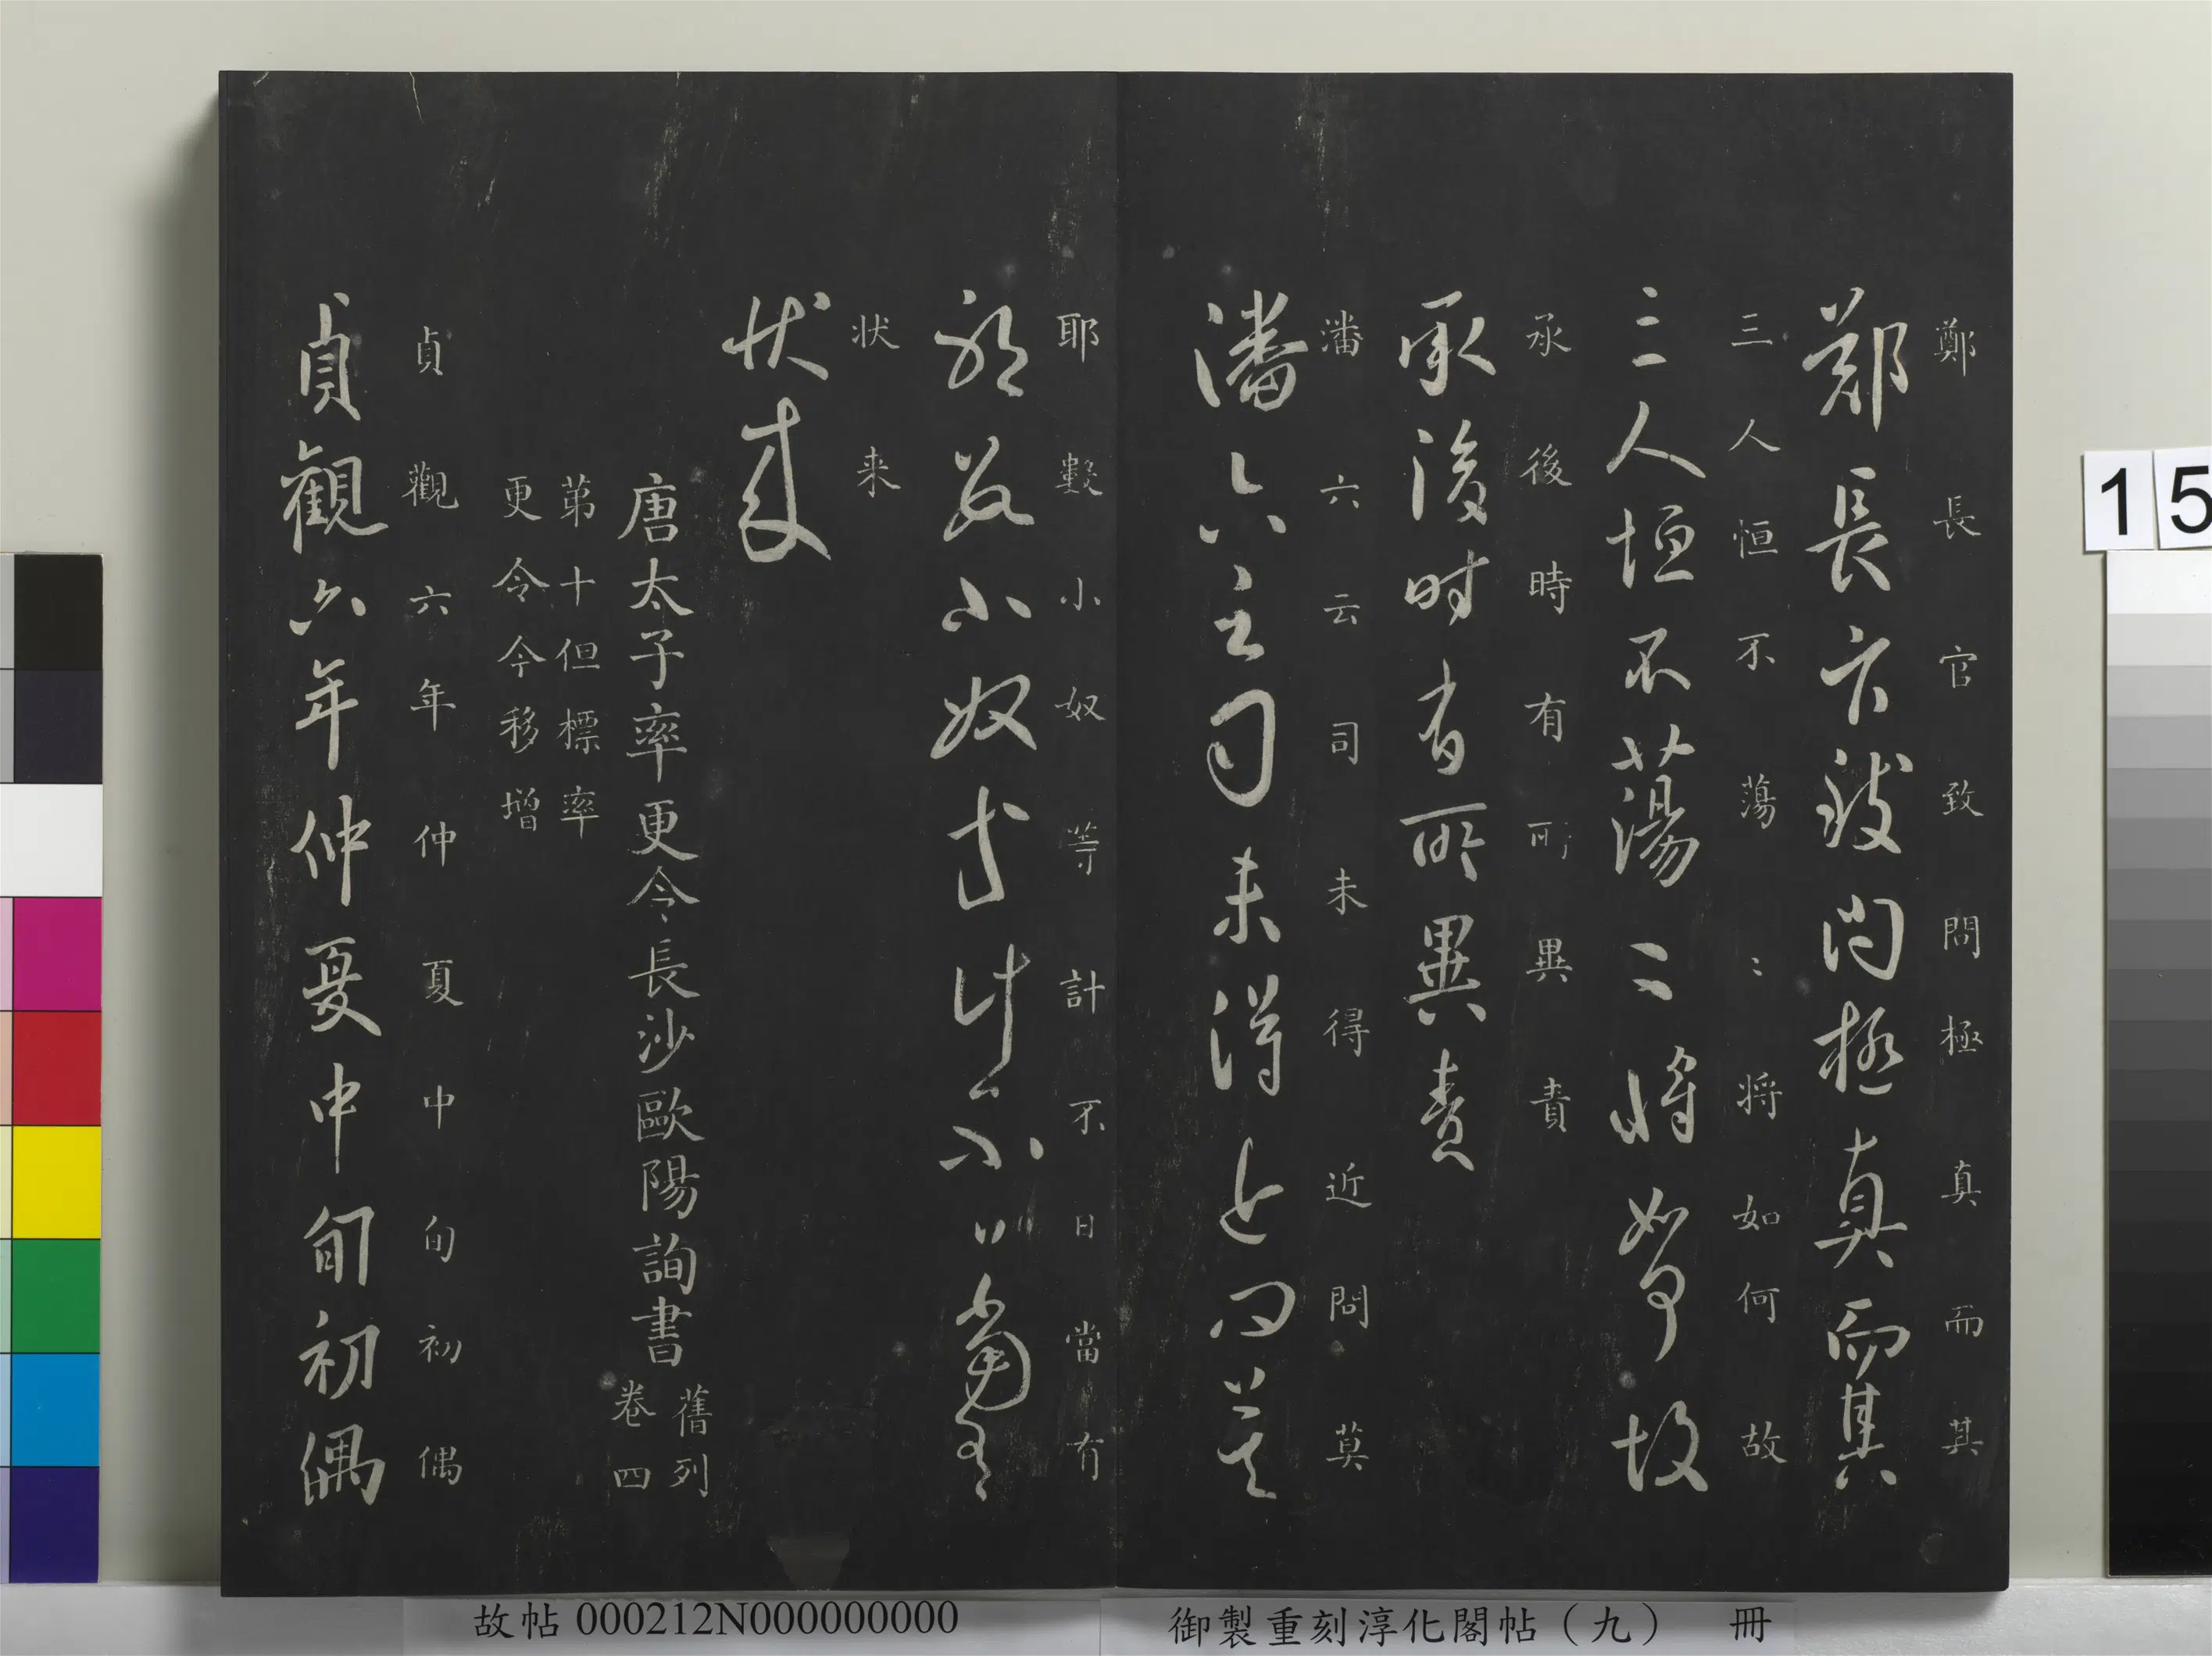 鄭長官致問極真而其
鄭長官致問極真而其
三人恒不蕩〻将如何故
三人恒不蕩〻将如何故
承後時有所異責
承後時有所異責
潘六云司未得近問莫
潘六云司未得近問莫
耶數小奴等計不日當有
耶數小奴等計不日當有
状来
状来
唐太子率更令長沙歐陽詢書
舊列
卷四
第十但標率
更令今移增
貞觀六年仲夏中旬初偶
貞觀六年仲夏中旬初偶
15
故帖 000212N000000000
御製重刻淳化閣帖（九） 冊